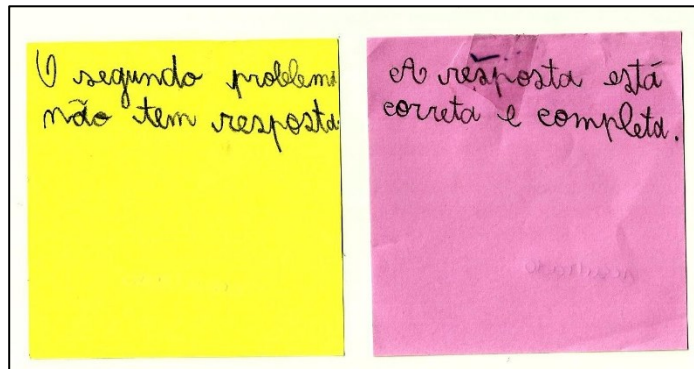 O segundo problema
não tem resposta
A resposta está
correta e completa.